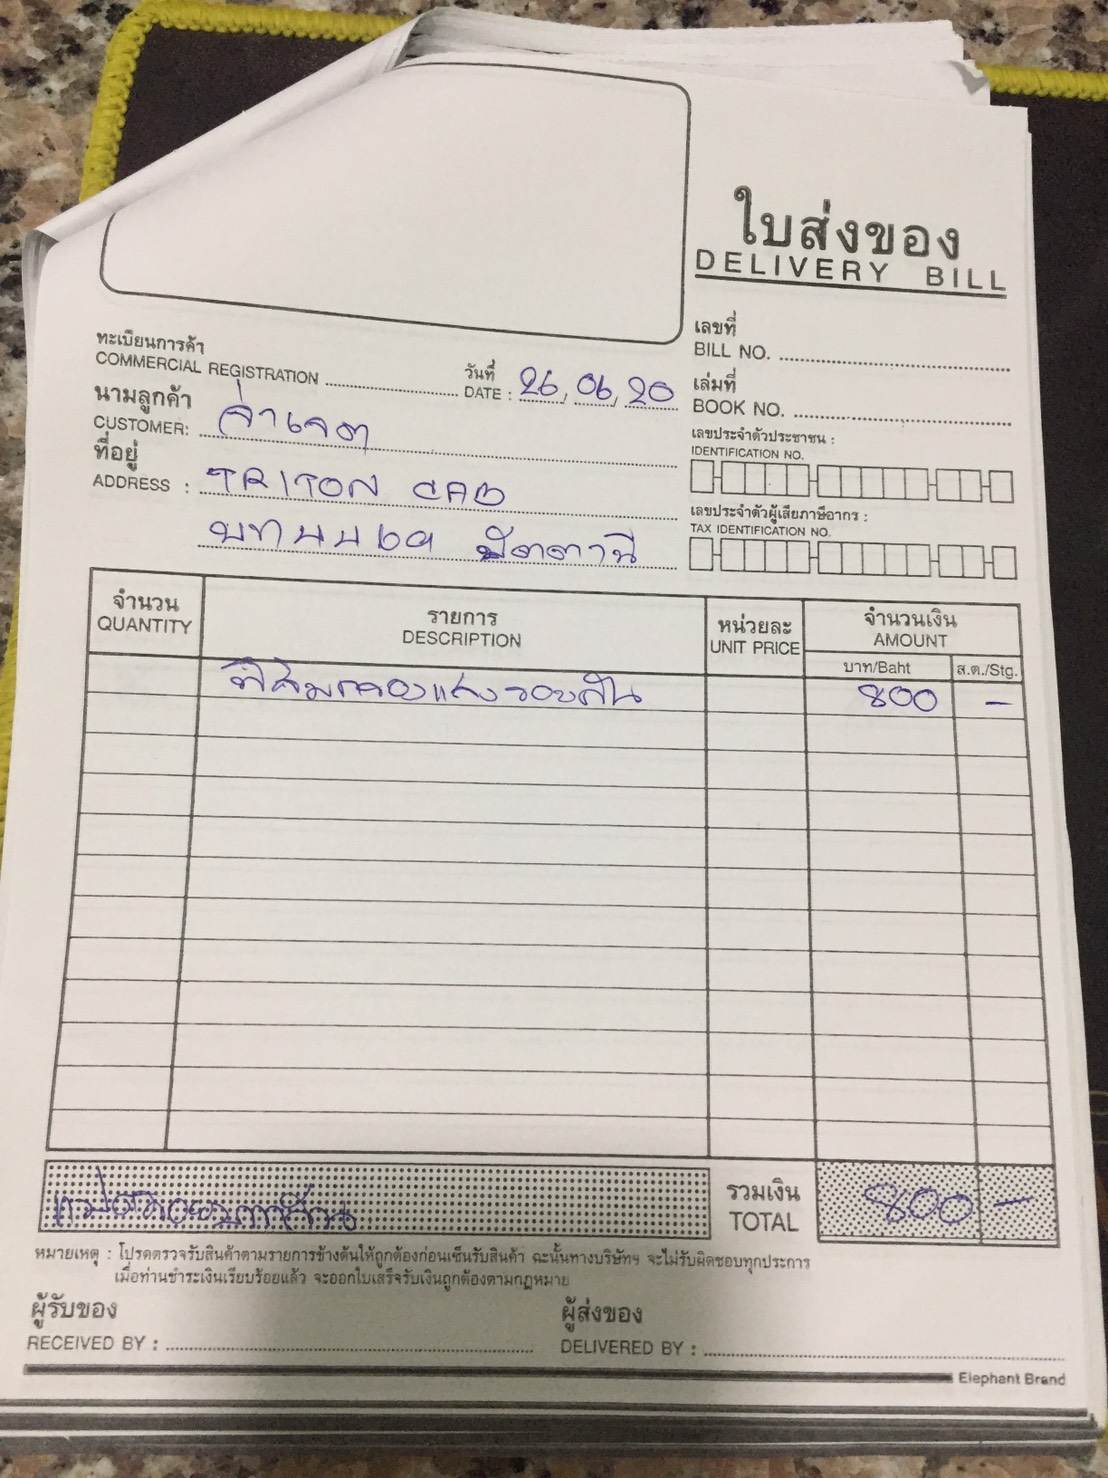 ใบส่งของ
DELIVERY BILL
เลขที่
BILL NO.
ทะเบียนการค้า
COMMERCIAL REGISTRATION
วันที่
DATE : 26, 06, 20
เล่มที่
BOOK NO.
นามลูกค้า
CUSTOMER: จ่าเจต
เลขประจำตัวประชาชน :
IDENTIFICATION NO.
ที่อยู่
ADDRESS : TRITON CAB
เลขประจำตัวผู้เสียภาษีอากร :
TAX IDENTIFICATION NO.
ปัตตานี
จำนวน
QUANTITY
รายการ
DESCRIPTION
หน่วยละ
UNIT PRICE
จำนวนเงิน
AMOUNT
บาท/Baht ส.ต./Stg.
ฟิล์มกรองแสงรอบคัน 800 –
รวมเงิน
TOTAL 800 –
หมายเหตุ : โปรดตรวจรับสินค้าตามรายการข้างต้นให้ถูกต้องก่อนเซ็นรับสินค้า ฉะนั้นทางบริษัทฯ จะไม่รับผิดชอบทุกประการ
เมื่อท่านชำระเงินเรียบร้อยแล้ว จะออกใบเสร็จรับเงินถูกต้องตามกฎหมาย
ผู้รับของ
RECEIVED BY :
ผู้ส่งของ
DELIVERED BY :
Elephant Brand